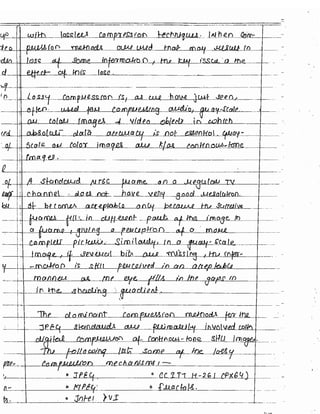 with lossless compression techniques. When com-
pression methods are used that may result in
loss of some information, the key issue is the
effect of this loss.
Lossy compression is, as we have just seen,
often used for compressing audio, gray-scale
or color images & video objects in which
absolute data accuracy is not essential. Gray-
Scale or color images are k/as continuous-tone
images.
A standard NTSC frame on a regular TV
channel does not have very good resolution.
It becomes acceptable only because the successive
frames fill in different parts of the image in
a frame, giving a perception of a more
complete picture. Similarly, in a gray-scale
image, if several bits are missing, the infor-
-mation is still perceived in an acceptable
manner as the eye fills in the gaps in
in the shading gradient.
The dominant compression methods for the
JPEG standards are primarily involved with
digital compression of continuous-tone still images
The following lists some of the lossy
compression mechanisms :-
* JPEG * CCITT H-261 (PX64)
* MPEG * fractals.
* Intel DVI